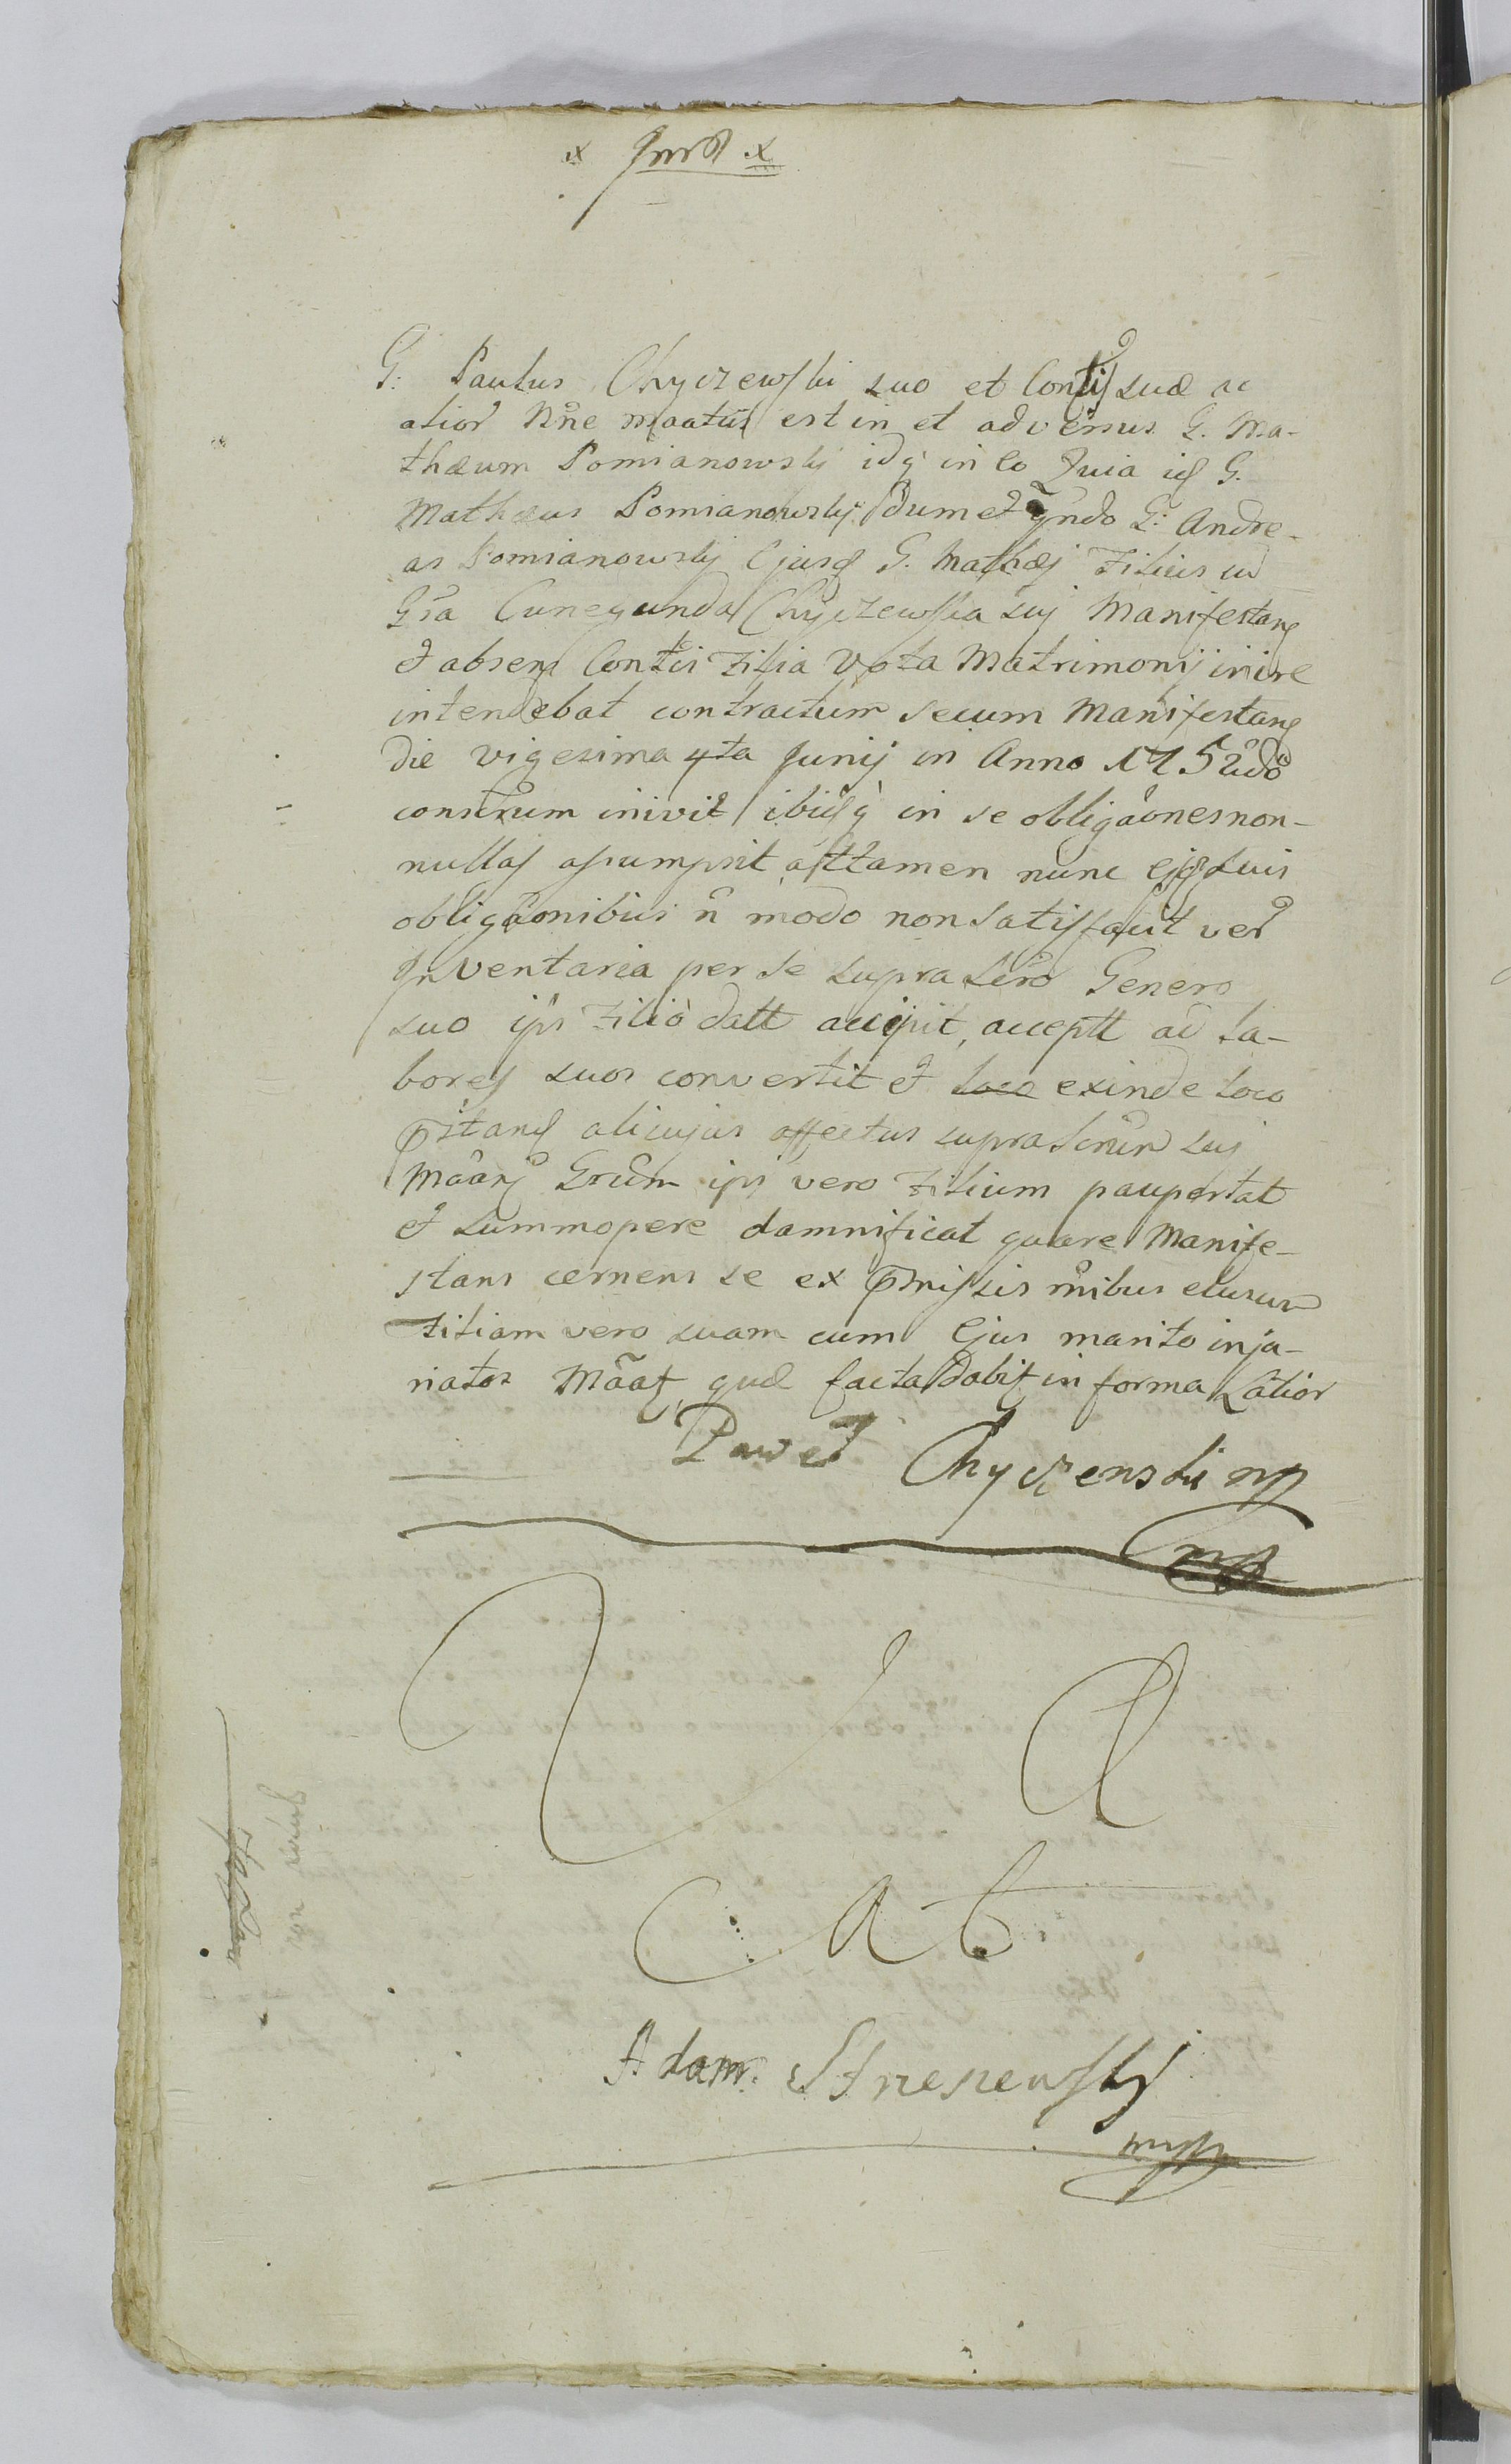 G: Paulus Chyczewski suo et Contlis suæ ac
alior nne maatus est in et adversus G. Ma-
thæum Pomianowskj idq in eo Quia is G.
Mathæus Pomianowskj dum et G: Andre-
as Pomianowskj Ejusd G. Mathæj Filius cu
Gsa Cunegunda Chyczewska suj Manifestans
et absens Contlis Filia Vota Matrimonij inire
intendebat contractum secum Manifestans
die vigesima 4ta Junij in Anno 1752do
conscrum inivit ibidq in se obligaones non-
nullas assumpsit, attamen nunc ejsd suis
obligaonibus n modo non satisfacit ver
Inventaria per se suprascro Genero
suo ipsi Filio datt accipit, acceptt ad la-
bores suos convertit et loco exinde loco
pstans alicujus affectus suprascrum suj
Maanj Grum ipsi vero Filium paupertat
et summopere damnificat quare Manife-
stans cernens se ex pmissis omnibus elusum
Filiam vero suam cum Ejus marito inju-
riatos Maat, quæ facta dabit in forma Latior
Paweł Chyczewski mp
mp
Adam Strzeszewskj
mpp